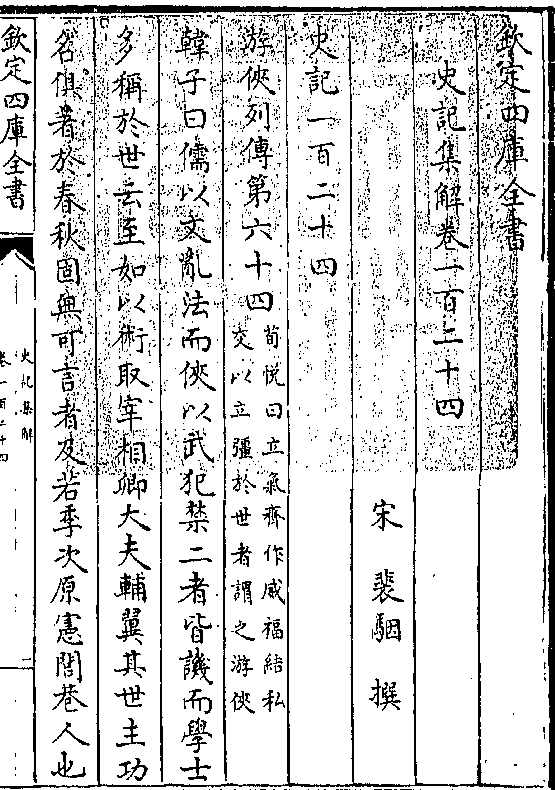 欽定四庫全書
史記集解卷一百二十四
宋 裴駰 撰
史記一百二十四
游俠列傳第六十四
荀悅曰立氣齊作威福結私
交以立彊於世者謂之游俠
韓子曰儒以文亂法而俠以武犯禁二者皆譏而學士
多稱於世云至如以術取宰相卿大夫輔翼其世主功
名俱著於春秋固無可言者及若季次原憲閭巷人也
欽定四庫全書
史記集解
卷一百二十四
一